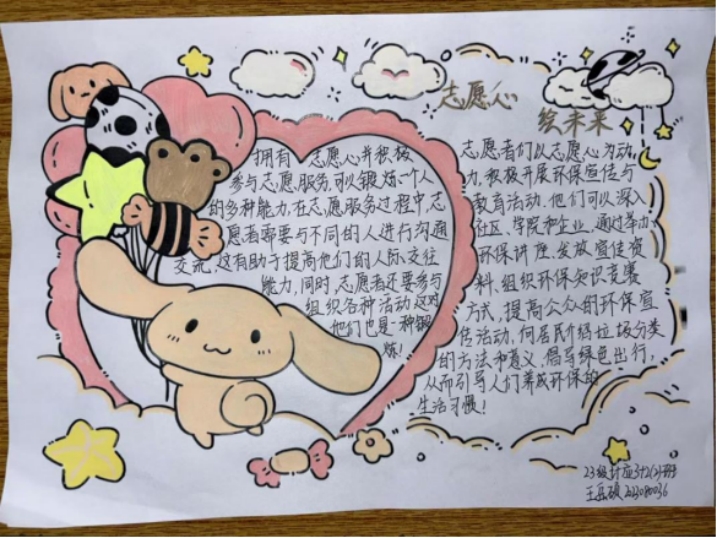 志愿心
绘未来
拥有一志愿心并积极
参与志愿服务,可以锻炼一个人
的多种能力,在志愿服务过程中,志
愿者需要与不同的人进行沟通
交流,这有助于提高他们的人际交往
能力,同时,志愿者还要参与
组织各种活动这对
他们也是一种锻
炼!
志愿者们以志愿心为动
力,积极开展环保宣传与
教育活动,他们可以深入
社区、学院和企业,通过举办
环保讲座、发放宣传资
料、组织环保知识竞赛
方式,提高公众的环保宣
传活动,向居民介绍垃圾分类
的方法和意义,倡导绿色出行,
从而引导人们养成环保的
生活习惯!
23级计应3+2(2)班
王 2023080036